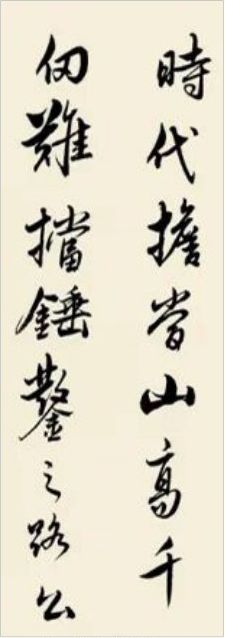 時代擔當山高千
仞難擋錘鑿之路公